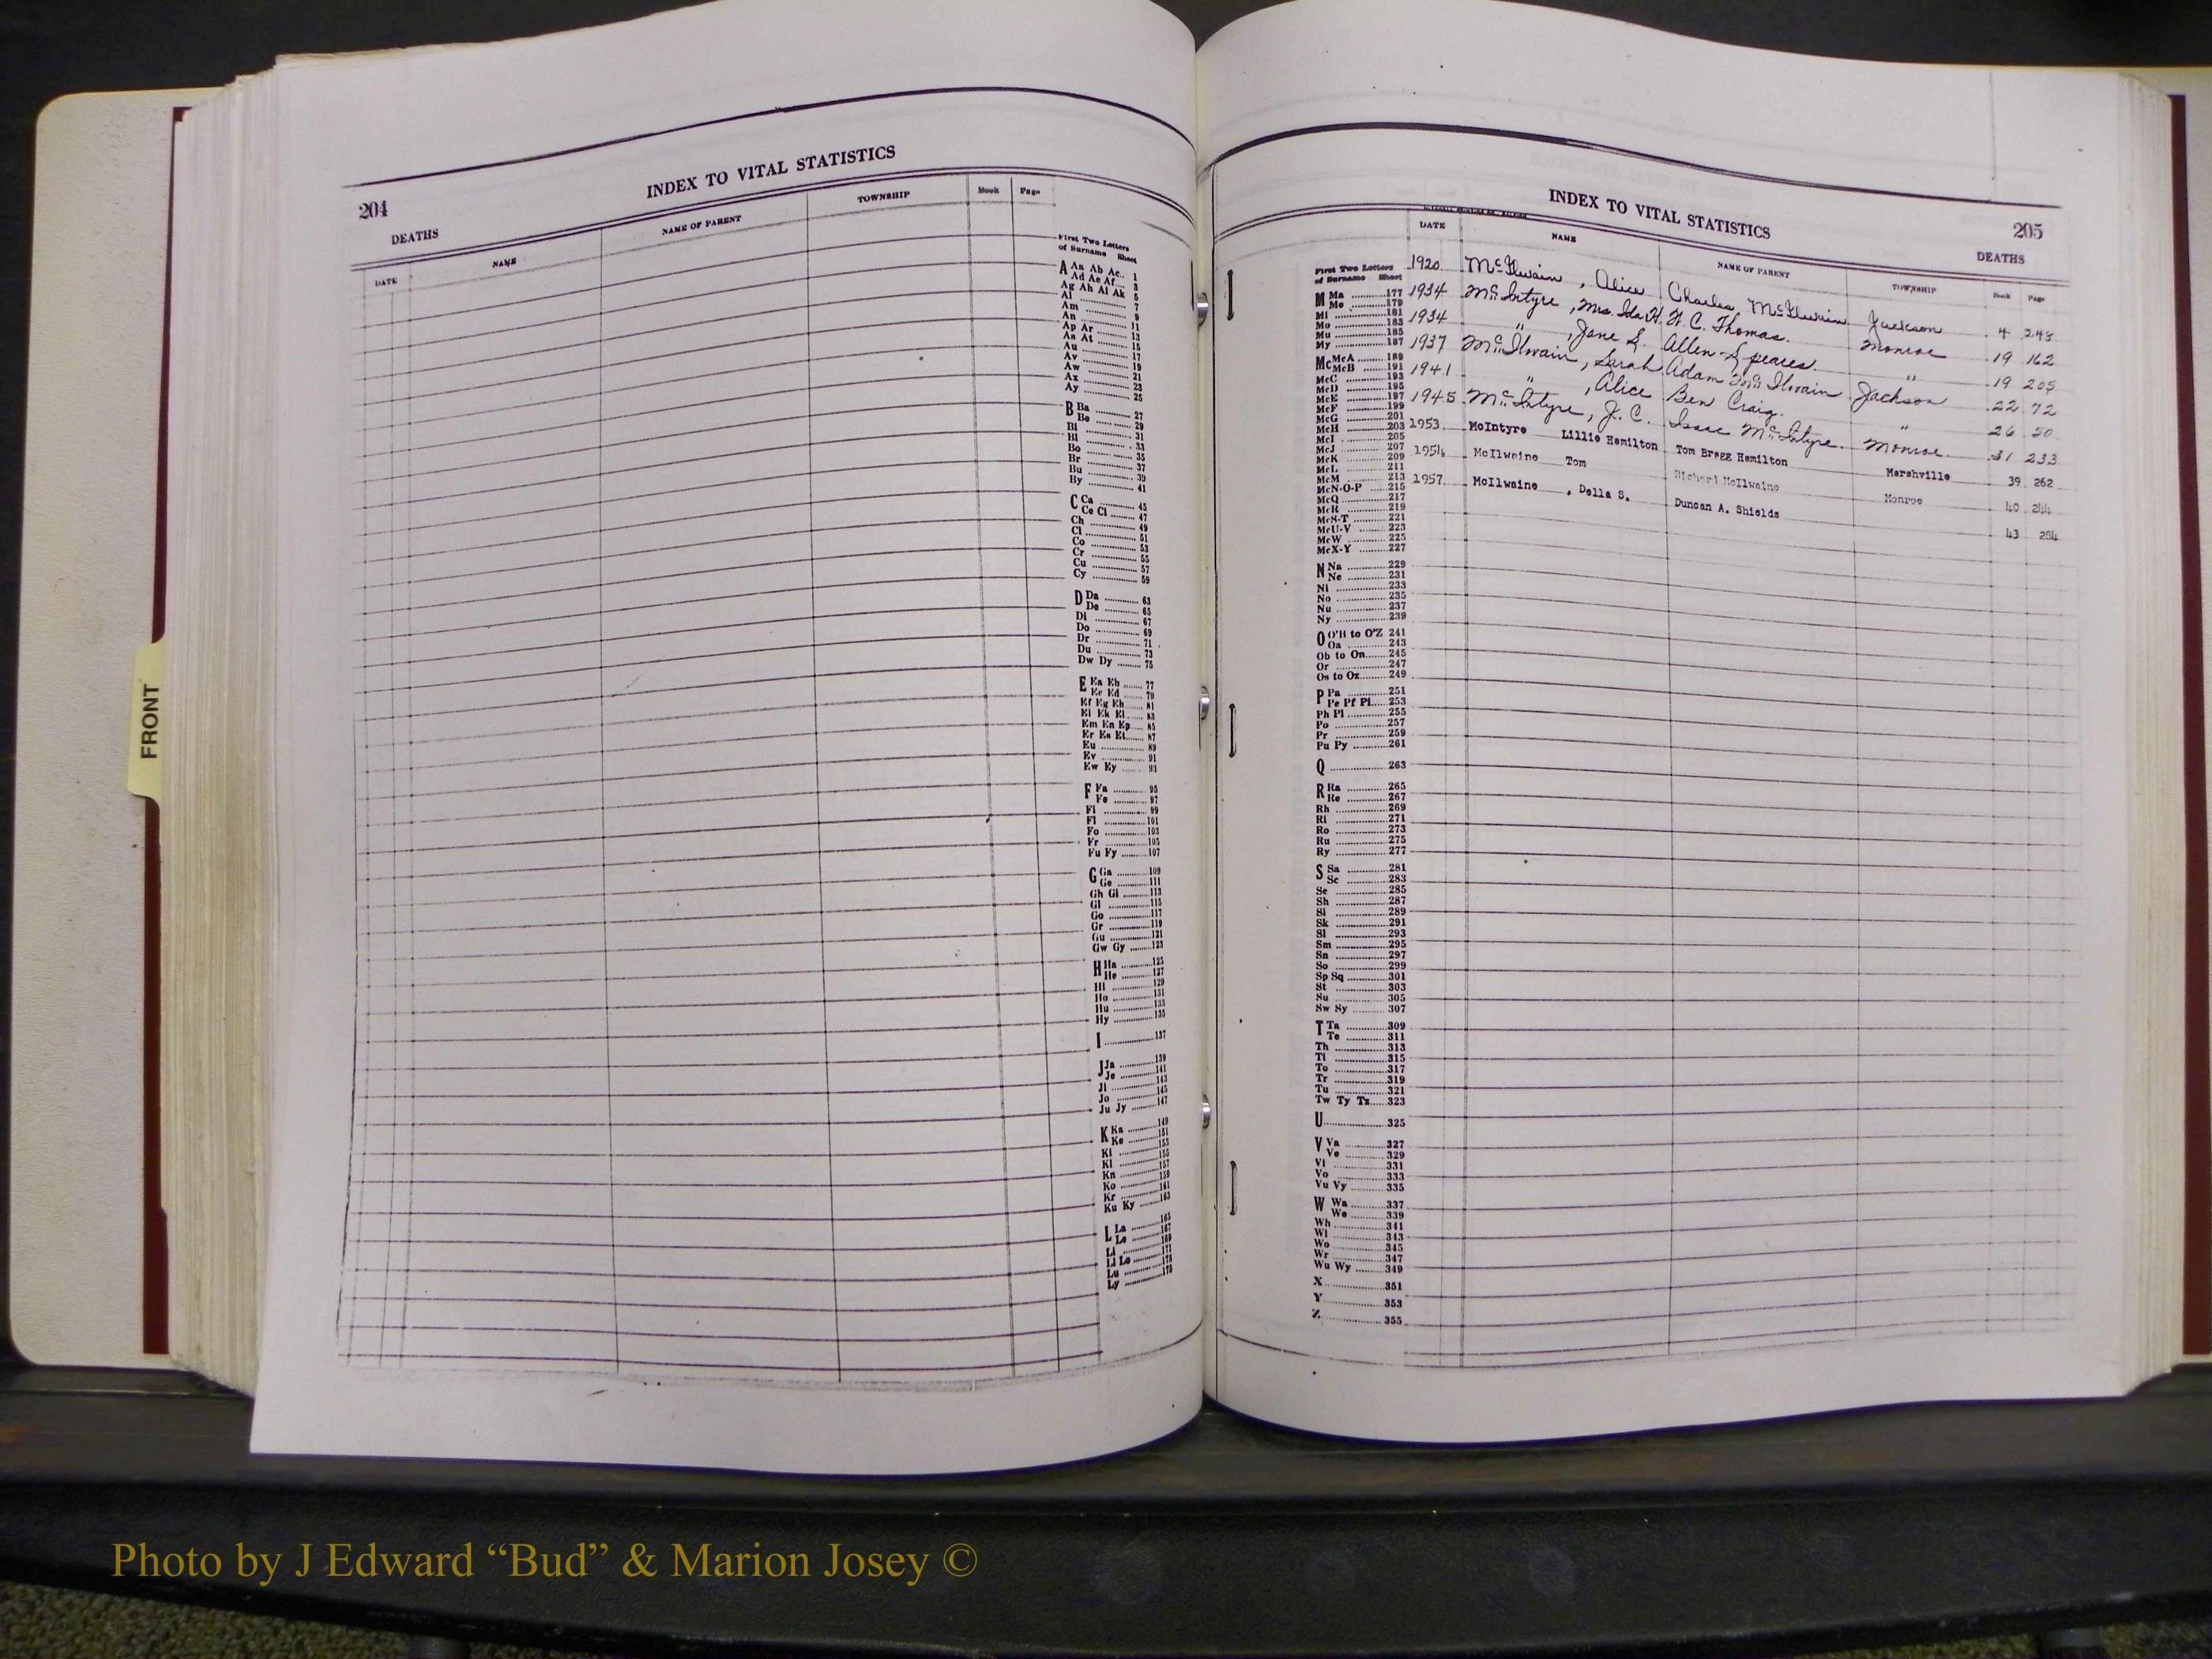 FRONT
204
INDEX TO VITAL STATISTICS
DEATHS
DATE NAME NAME OF PARENT TOWNSHIP Book Page
First Two Letters
of Surname Sheet
A Aa Ab Ac.. 1
Ad Ae Af... 3
Ag Ah Ai Ak 5
Al 7
Am 9
An 11
Ap Ar 13
As At 15
Au 17
Av 19
Aw 21
Ax 23
Ay 25
B Ba 27
Be 29
Bi 31
Bl 33
Bo 35
Br 37
Bu 39
By 41
C Ca 45
Ce Ci 47
Ch 49
Cl 51
Co 53
Cr 55
Cu 57
Cy 59
D Da 63
De 65
Di 67
Do 69
Dr 71
Du 73
Dw Dy 75
E Ea Eb 77
Ec Ed 79
Ef Eg Eh 81
Ei Ek El 83
Em En Ep 85
Er Es Et 87
Eu 89
Ev 91
Ew Ey 93
F Fa 95
Fe 97
Fi 99
Fl 101
Fo 103
Fr 105
Fu Fy 107
G Ga 109
Ge 111
Gh Gi 113
Gl 115
Go 117
Gr 119
Gu 121
Gw Gy 123
H Ha 125
He 127
Hi 129
Ho 131
Hu 133
Hy 135
I 137
J Ja 139
Je 141
Ji 143
Jo 145
Ju Jy 147
K Ka 149
Ke 151
Ki 153
Kl 155
Kn 157
Ko 159
Kr 161
Ku Ky 163
L La 165
Le 167
Li 169
Ll Lo 171
Lu 173
Ly 175
INDEX TO VITAL STATISTICS
205
DEATHS
DATE NAME NAME OF PARENT TOWNSHIP Book Page
1920 McIlwain, Alice Charles McIlwain Jackson 4 248
1934 McIntyre, Mrs. Ida H. H. C. Thomas. Monroe 19 162
1934 " , Jane S. Allen Speares. " 19 205
1937 McIlwain, Sarah Adam McIlwain Jackson 22 72
1941 " , Alice Ben Craig. " 26 50
1945 McIntyre, J. C. Isaac McIntyre. Monroe. 31 233
1953 McIntyre Lillie Hamilton Tom Bragg Hamilton Marshville 39 262
1954 McIlwaine Tom Richard McIlwaine Monroe 40 244
1957 McIlwaine , Della S. Duncan A. Shields 43 284
First Two Letters
of Surname Sheet
M Ma 177
Me 179
Mi 181
Mo 183
Mu 185
My 187
Mc McA 189
McB 191
McC 193
McD 195
McE 197
McF 199
McG 201
McH 203
McI 205
McJ 207
McK 209
McL 211
McM 213
McN-O-P 215
McQ 217
McR 219
McS-T 221
McU-V 223
McW 225
McX-Y 227
N Na 229
Ne 231
Ni 233
No 235
Nu 237
Ny 239
O O'B to O'Z 241
Oa 243
Ob to On 245
Or 247
Os to Oz 249
P Pa 251
Pe Pf Pl 253
Ph Pi 255
Po 257
Pr 259
Pu Py 261
Q 263
R Ra 265
Re 267
Rh 269
Ri 271
Ro 273
Ru 275
Ry 277
S Sa 281
Sc 283
Se 285
Sh 287
Si 289
Sk 291
Sl 293
Sm 295
Sn 297
So 299
Sp Sq 301
St 303
Su 305
Sw Sy 307
T Ta 309
Te 311
Th 313
Ti 315
To 317
Tr 319
Tu 321
Tw Ty Tz 323
U 325
V Va 327
Ve 329
Vi 331
Vo 333
Vu Vy 335
W Wa 337
We 339
Wh 341
Wi 343
Wo 345
Wr 347
Wu Wy 349
X 351
Y 353
Z 355
Photo by J Edward “Bud” & Marion Josey ©